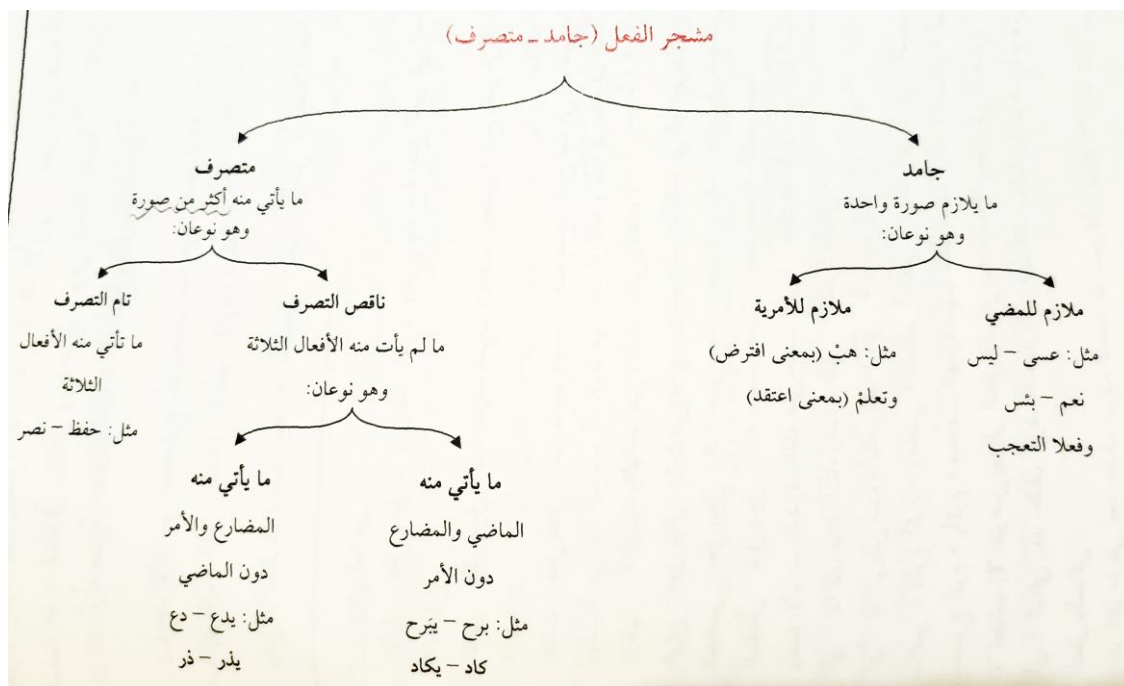 مشجر الفعل (جامد ـ متصرف)
جامد
ما يلازم صورة واحدة
وهو نوعان:
ملازم للمضي
مثل: عسى – ليس
نعم – بئس
وفعلا التعجب
ملازم للأمرية
مثل: هبْ (بمعنى افترض)
وتعلمْ (بمعنى اعتقد)
متصرف
ما يأتي منه أكثر من صورة
وهو نوعان:
ناقص التصرف
ما لم يأت منه الأفعال الثلاثة
وهو نوعان:
ما يأتي منه
الماضي والمضارع
دون الأمر
مثل: برح – يبَرح
كاد – يكاد
ما يأتي منه
المضارع والأمر
دون الماضي
مثل: يدع – دع
يذر – ذر
تام التصرف
ما تأتي منه الأفعال
الثلاثة
مثل: حفظ – نصر